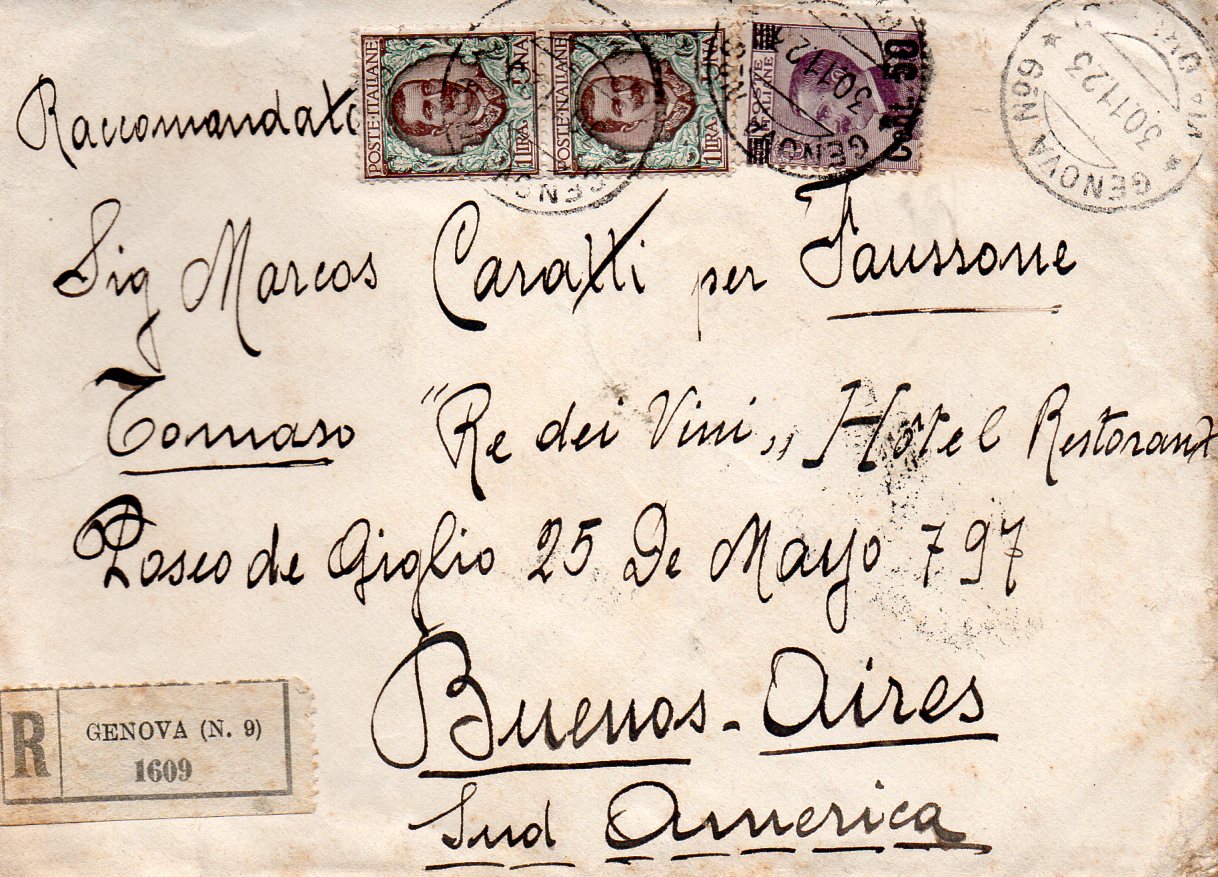 Raccomandata
POSTE·ITALIANE
UNA
1 LIRA
POSTE·ITALIANE
UNA
1 LIRA
POSTE ITALIANE
Cent. 50
GENOVA
30.11.2
GENOVA N.9
30.11.23
Sig Marcos Caratti per Faussone
Tomaso "Re dei Vini" Hotel Restorant
Paseo de Giglio 25 De Mayo 797
Buenos-Aires
Sud America
R
GENOVA (N. 9)
1609